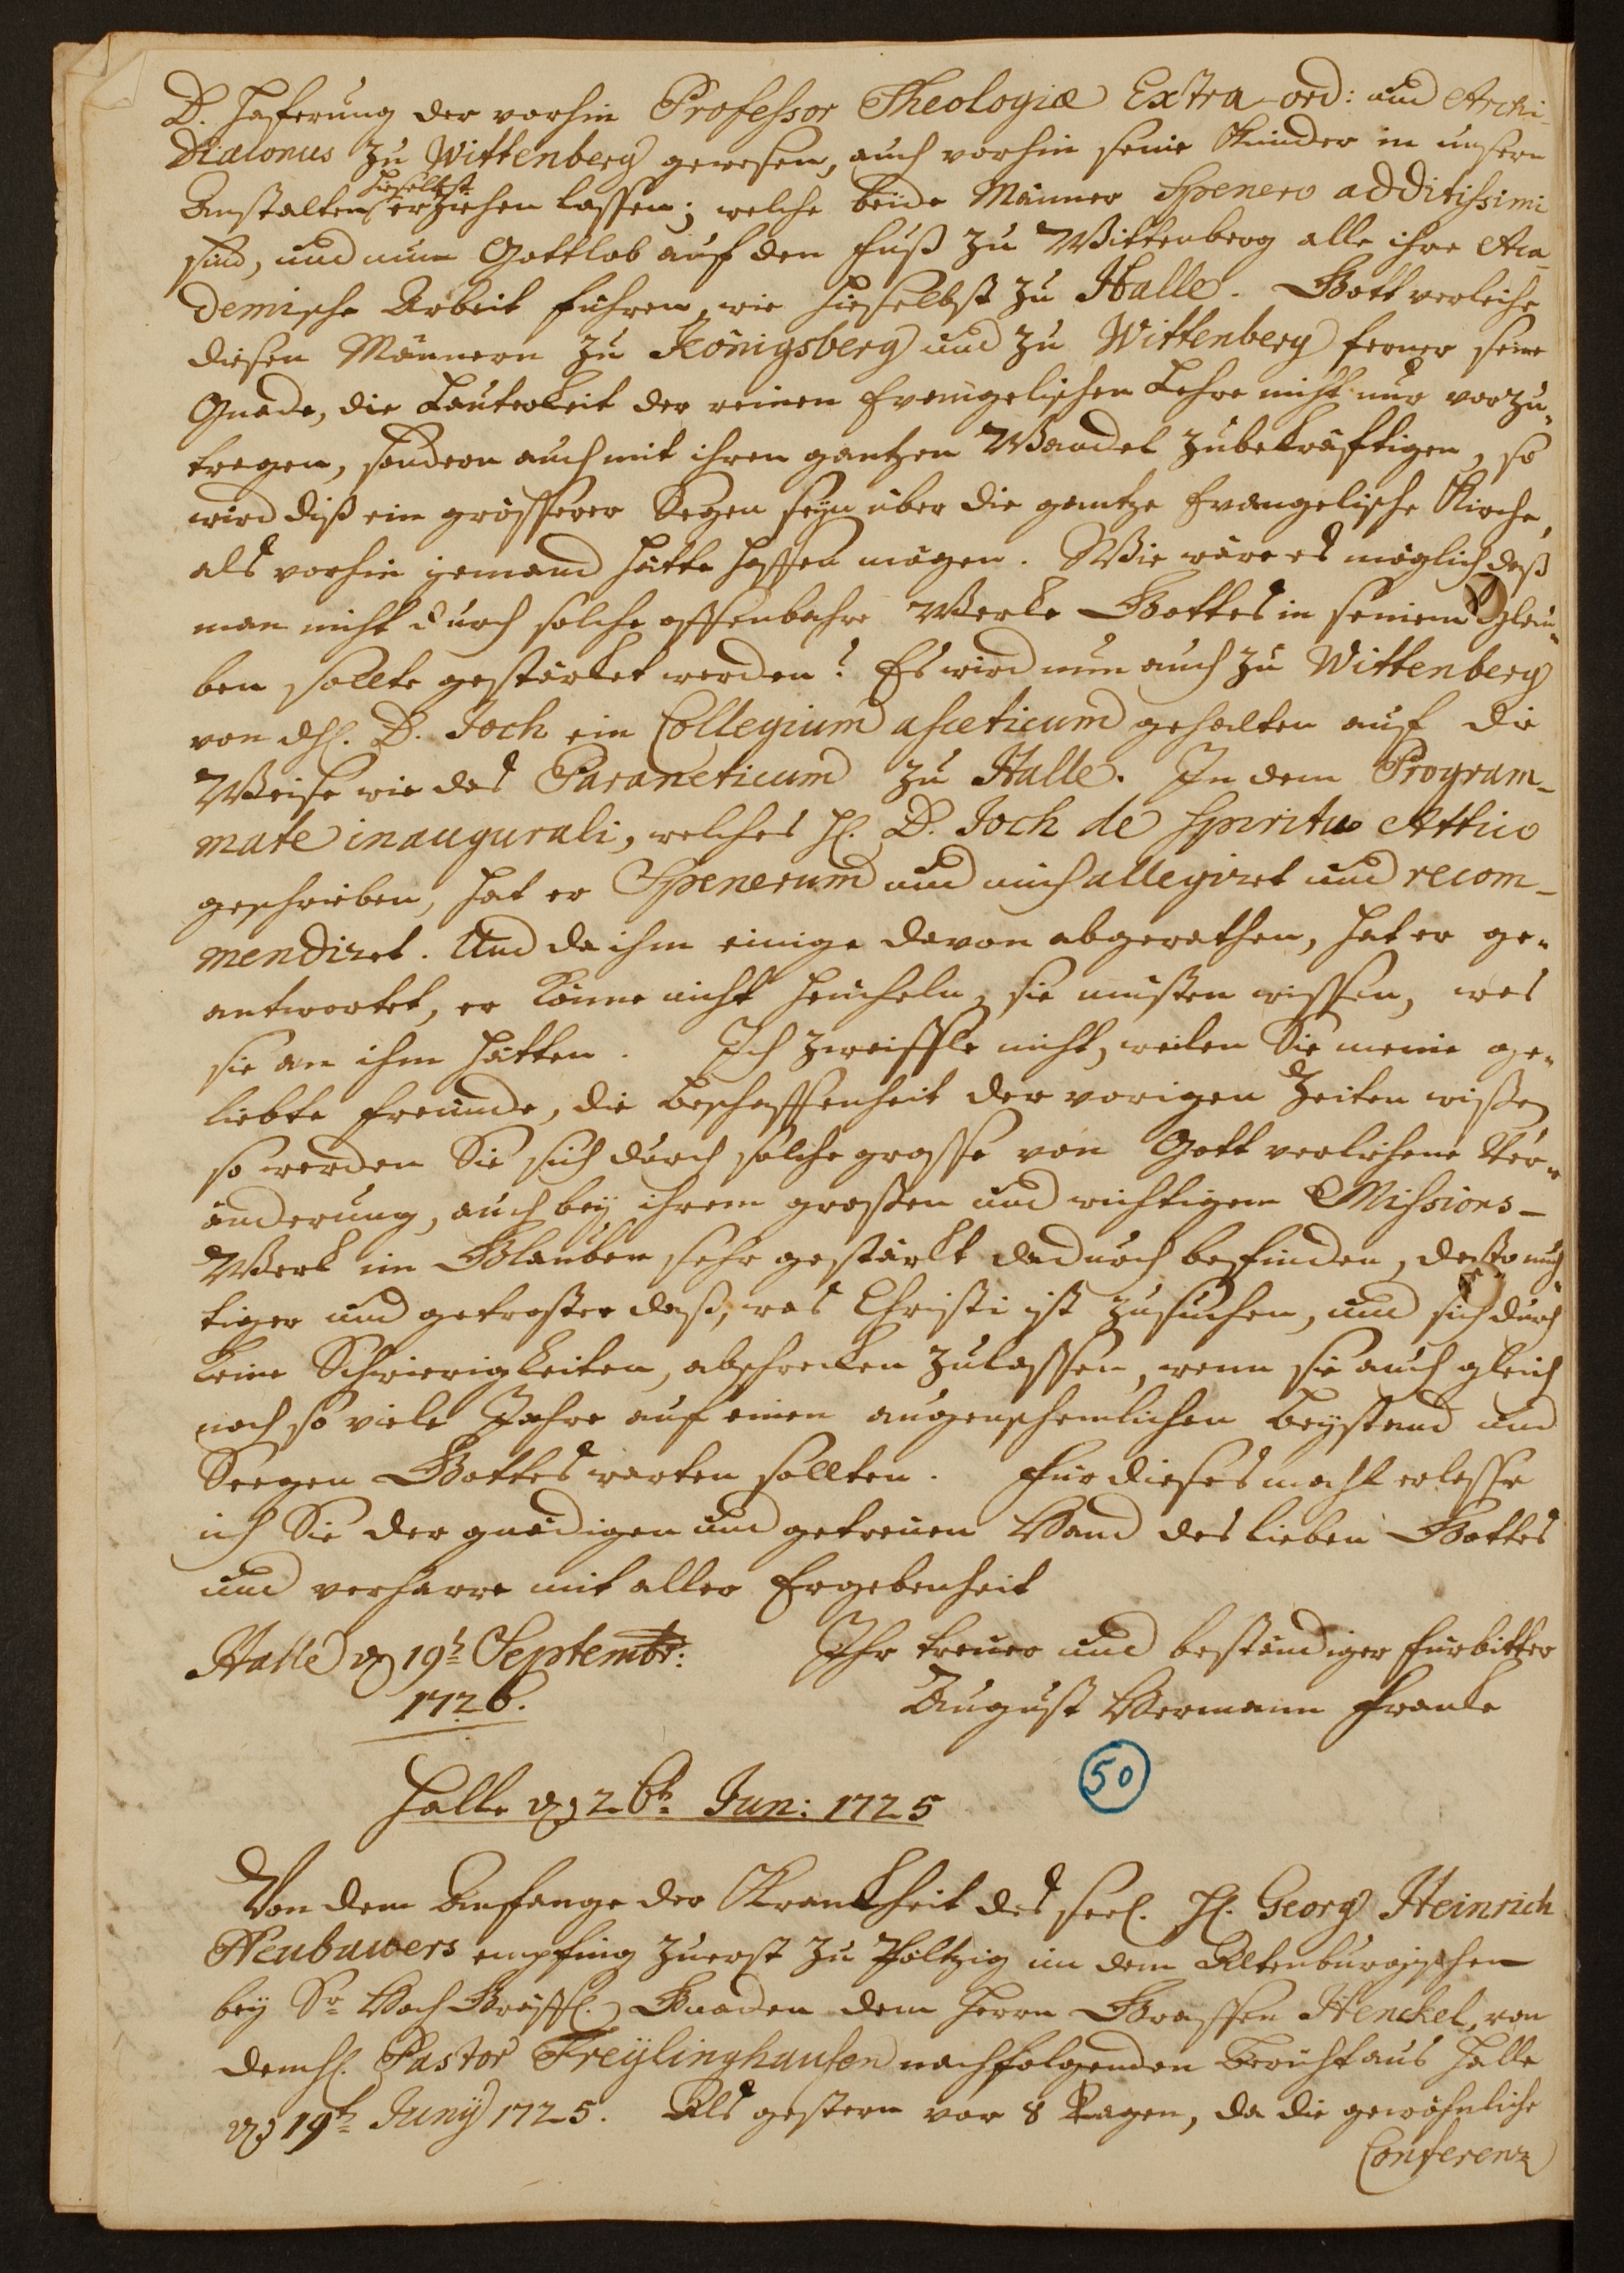 D. Haferung der vorhin Professor Theologiæ Extra-ord: und Archi-
Diaconus zu Wittenberg gewesen, auch vorhin seine Kinder in unsern
Anstalten hieselbst erziehen lassen; welche beide Männer Spenero additissimi
sind, und nun Gottlob auf den Fuß zu Wittenberg alle ihre Aca-
demische Arbeit führen, wie hieselbst zu Halle. Gott verleihe
diesen Männern zu Königsberg und zu Wittenberg ferner seine
Gnade, die Lauterkeit der reinen Evangelischen Lehre nicht nur vorzu-
tragen, sondern auch mit ihren gantzen Wandel zubekräftigen, so
wird diß ein grösserer Segen seyn über die gantze Evangelische Kirche,
als vorhin jemand hätte hoffen mögen. Wie wäre es möglich daß
man nicht durch solche offenbahre Wercke Gottes in seinem Glau-
ben sollte gestärket werden? Es wird nun auch zu Wittenberg
von dH. D. Joch ein Collegium asceticum gehalten auf die
Weise wie das Paraneticum zu Halle. In dem Program-
mate inaugurali, welches H. D. Joch de Spiritu Attico
geschrieben, hat er Spenerum und mich allegiret und recom-
mendiret. Und da ihm einige davon abgerathen, hat er ge-
antwortet, er könne nicht heucheln, sie müsten wissen, was
sie an ihm hätten. Ich zweiffle nicht, weilen Sie meine ge-
liebte Freunde, die Beschaffenheit der vorigen Zeiten wissen
so werden Sie sich durch solche grosse von Gott verliehene Ver-
änderung, auch bey ihrem grosten und wichtigem Missions-
Werck im Glauben sehr gestärckt dadurch befinden, desto muth-
tiger und getroster daß, was Christi ist zusuchen, und sich durch
keine Schwierigkeiten, abschrecken zulassen, wenn sie auch gleich
noch so viele Jahre auf einen augenscheinlichen Beystand und
Seegen Gottes warten sollten. Für dieses mahl erlasse
ich Sie der gnädigen und getreuen Hand des lieben Gottes
und verharre mit aller Ergebenheit
Halle d 19t Septembr: Ihr treuer und beständiger Fürbitter
1726. August Hermann Francke
50
Halle d 26t Jun: 1725
Von dem Anfange der Kranckheit des seel. H. Georg Heinrich
Neubauers empfing zuerst zu Pöltzig im dem Altenburgischen
bey Sr Hoch Gräffl. Gnaden dem Herrn Graffen Henckel, von
dem H. Pastor Freÿlinghausen nachfolgenden Bericht aus Halle
d 19t Junÿ 1725. Als gestern vor 8 Tagen, da die gewöhnliche
Conferenz